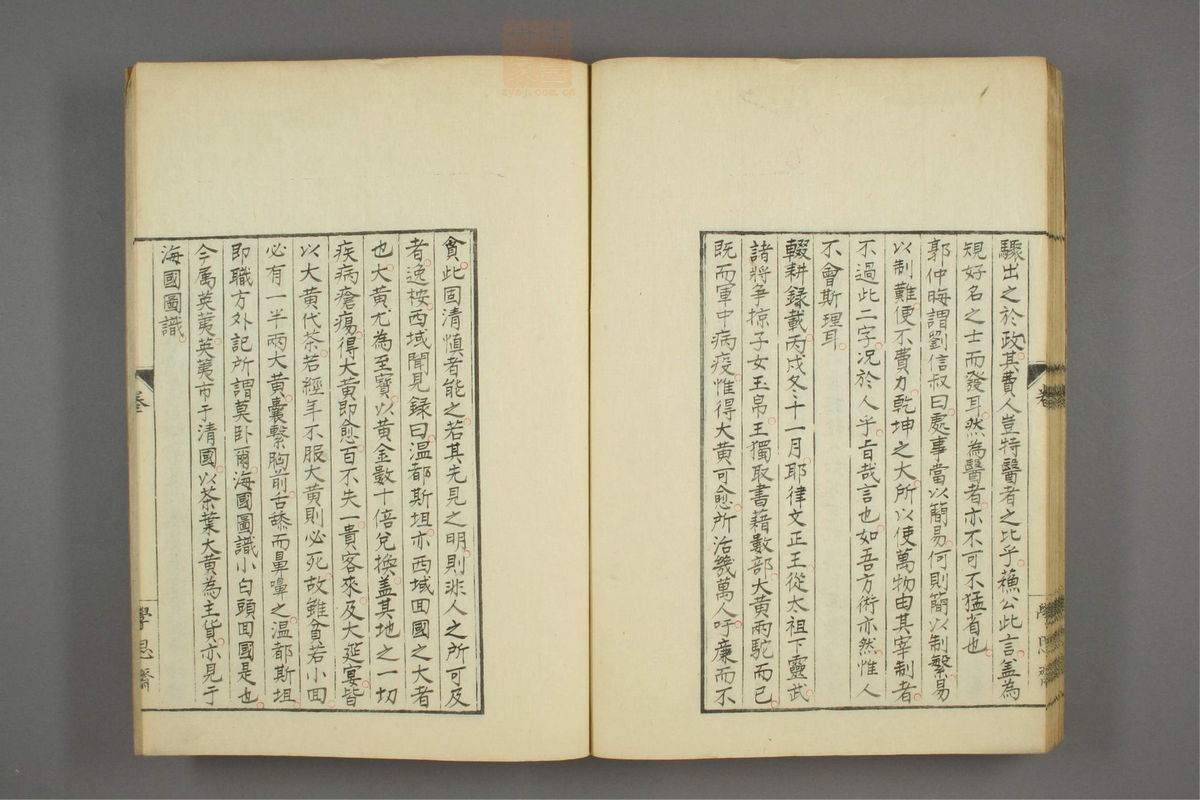 驟出之於政其費人豈特醫者之比乎蘓公此言盖為
䂓好名之士而發耳然為醫者亦不可不猛省也
郭仲晦謂劉信叔曰處事當以簡易何則簡以制繁易
以制難便不費力乾坤之大所以使萬物由其宰制者
不過此二字况於人乎旨哉言也如吾方術亦然惟人
不會斯理耳
輟耕録載丙戌冬十一月耶律文正王從太祖下靈武
諸將爭掠子女玉帛王獨取書藉數部大黄兩駝而已
既而軍中病疫惟得大黄可愈所活幾萬人吁廉而不
貪此固清慎者能之若其先見之明則非人之所可及
者逸桉西域聞見録曰温都斯坦亦西域回國之大者
也大黄尤為至寶以黄金數十倍兌換盖其地之一切
疾病瘡瘍得大黄即愈百不失一貴客來及大延宴皆
以大黄代茶若經年不服大黄則必死故雖貧若小回
必有一半兩大黄囊繫胸前舌舔而鼻嗅之温都斯坦
即職方外記所謂莫卧爾海國圖識小白頭回國是也
今属英荑英荑市于清國以茶葉大黄為主貨亦見于
海國圖識
卷三
學思齋